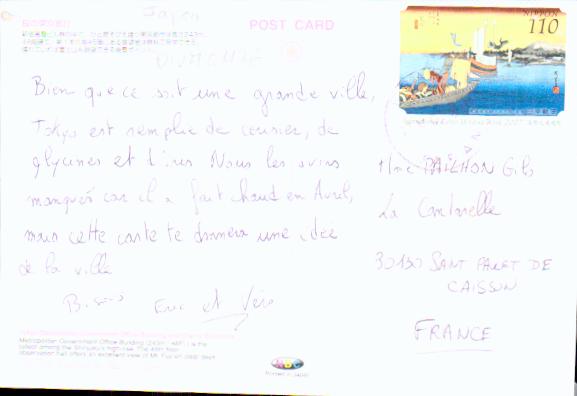 Japan
POST CARD
NIPPON
110
Bien que ce soit une grande ville,
Tokyo est remplie de cerisier, de
glycines et d'iris Nous les avons
manqués car il a fait chaud en Avril,
mais cette carte te donnera une idée
de la ville
Eric et Véro
Mme PAILHON Gils
La Cantarelle
30130 SANT PAULET DE
CAISSON
FRANCE
Metropolitan Government Office Building (243m : 48F) is the
tallest among the Shinjuku's high-rise. The 45th floor
observation hall offers an excellent view of Mt. Fuji on clear days.
NBC
Printed in Japan